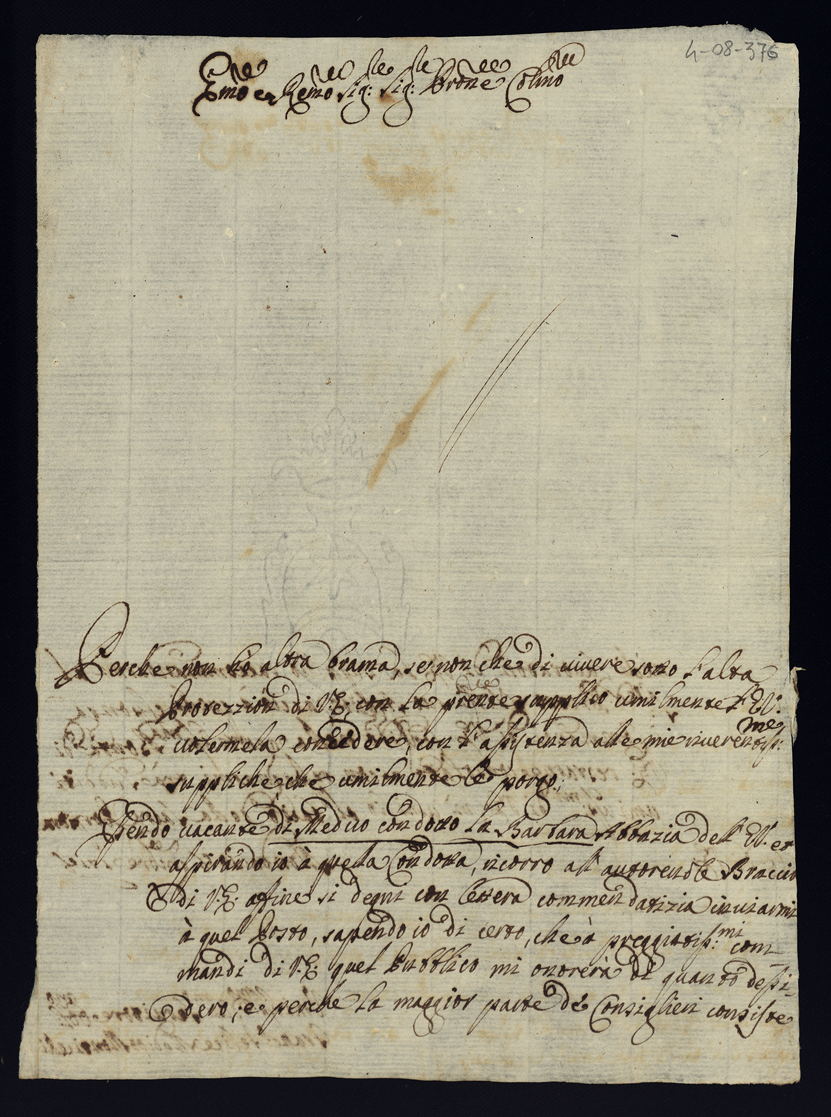 4-08-376
Emo e Remo Sig: Sig: Prone Colmo
Perche non hò altra brama, se non che di vivere sotto l'alta
Protezzion di V:E: con la prente supplico umilmente l'E.V:
volermela concedere, con l'assistenza alle mie riverentiss:me
suppliche che umilmente le porgo.
Essendo vacante di Medico condotto la Barbara Abbazia dell'E.V. et
aspirando io à quella Condotta, ricorro all' autorevole Braccio
di V:E: affine si degni con lettera commendatizia inviarmi
à quel Posto, sapendo io di certo, che à preggiatiss:mi com-
mandi di V:E: quel Pubblico mi onorerà di quanto dessi-
dero; e perche la maggior parte de Consiglieri consiste